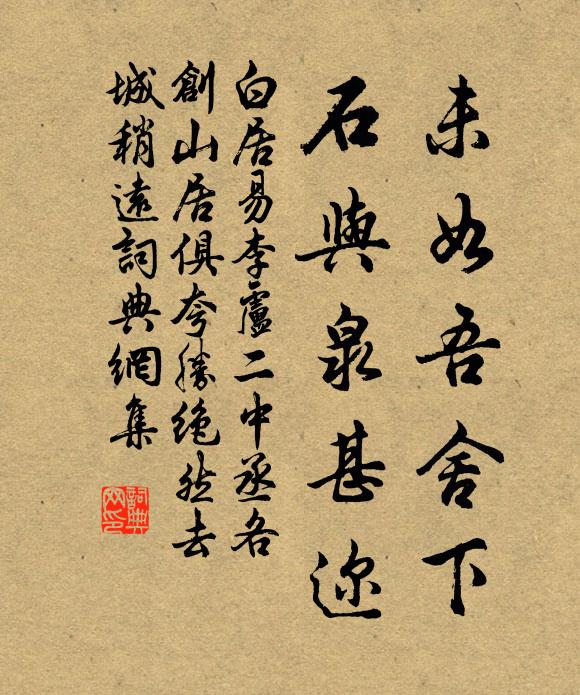 未如吾舍下
石與泉甚迩
白居易李盧二中丞各
創山居俱夸勝絶然去
城稍遠詞典網集
詞典网印